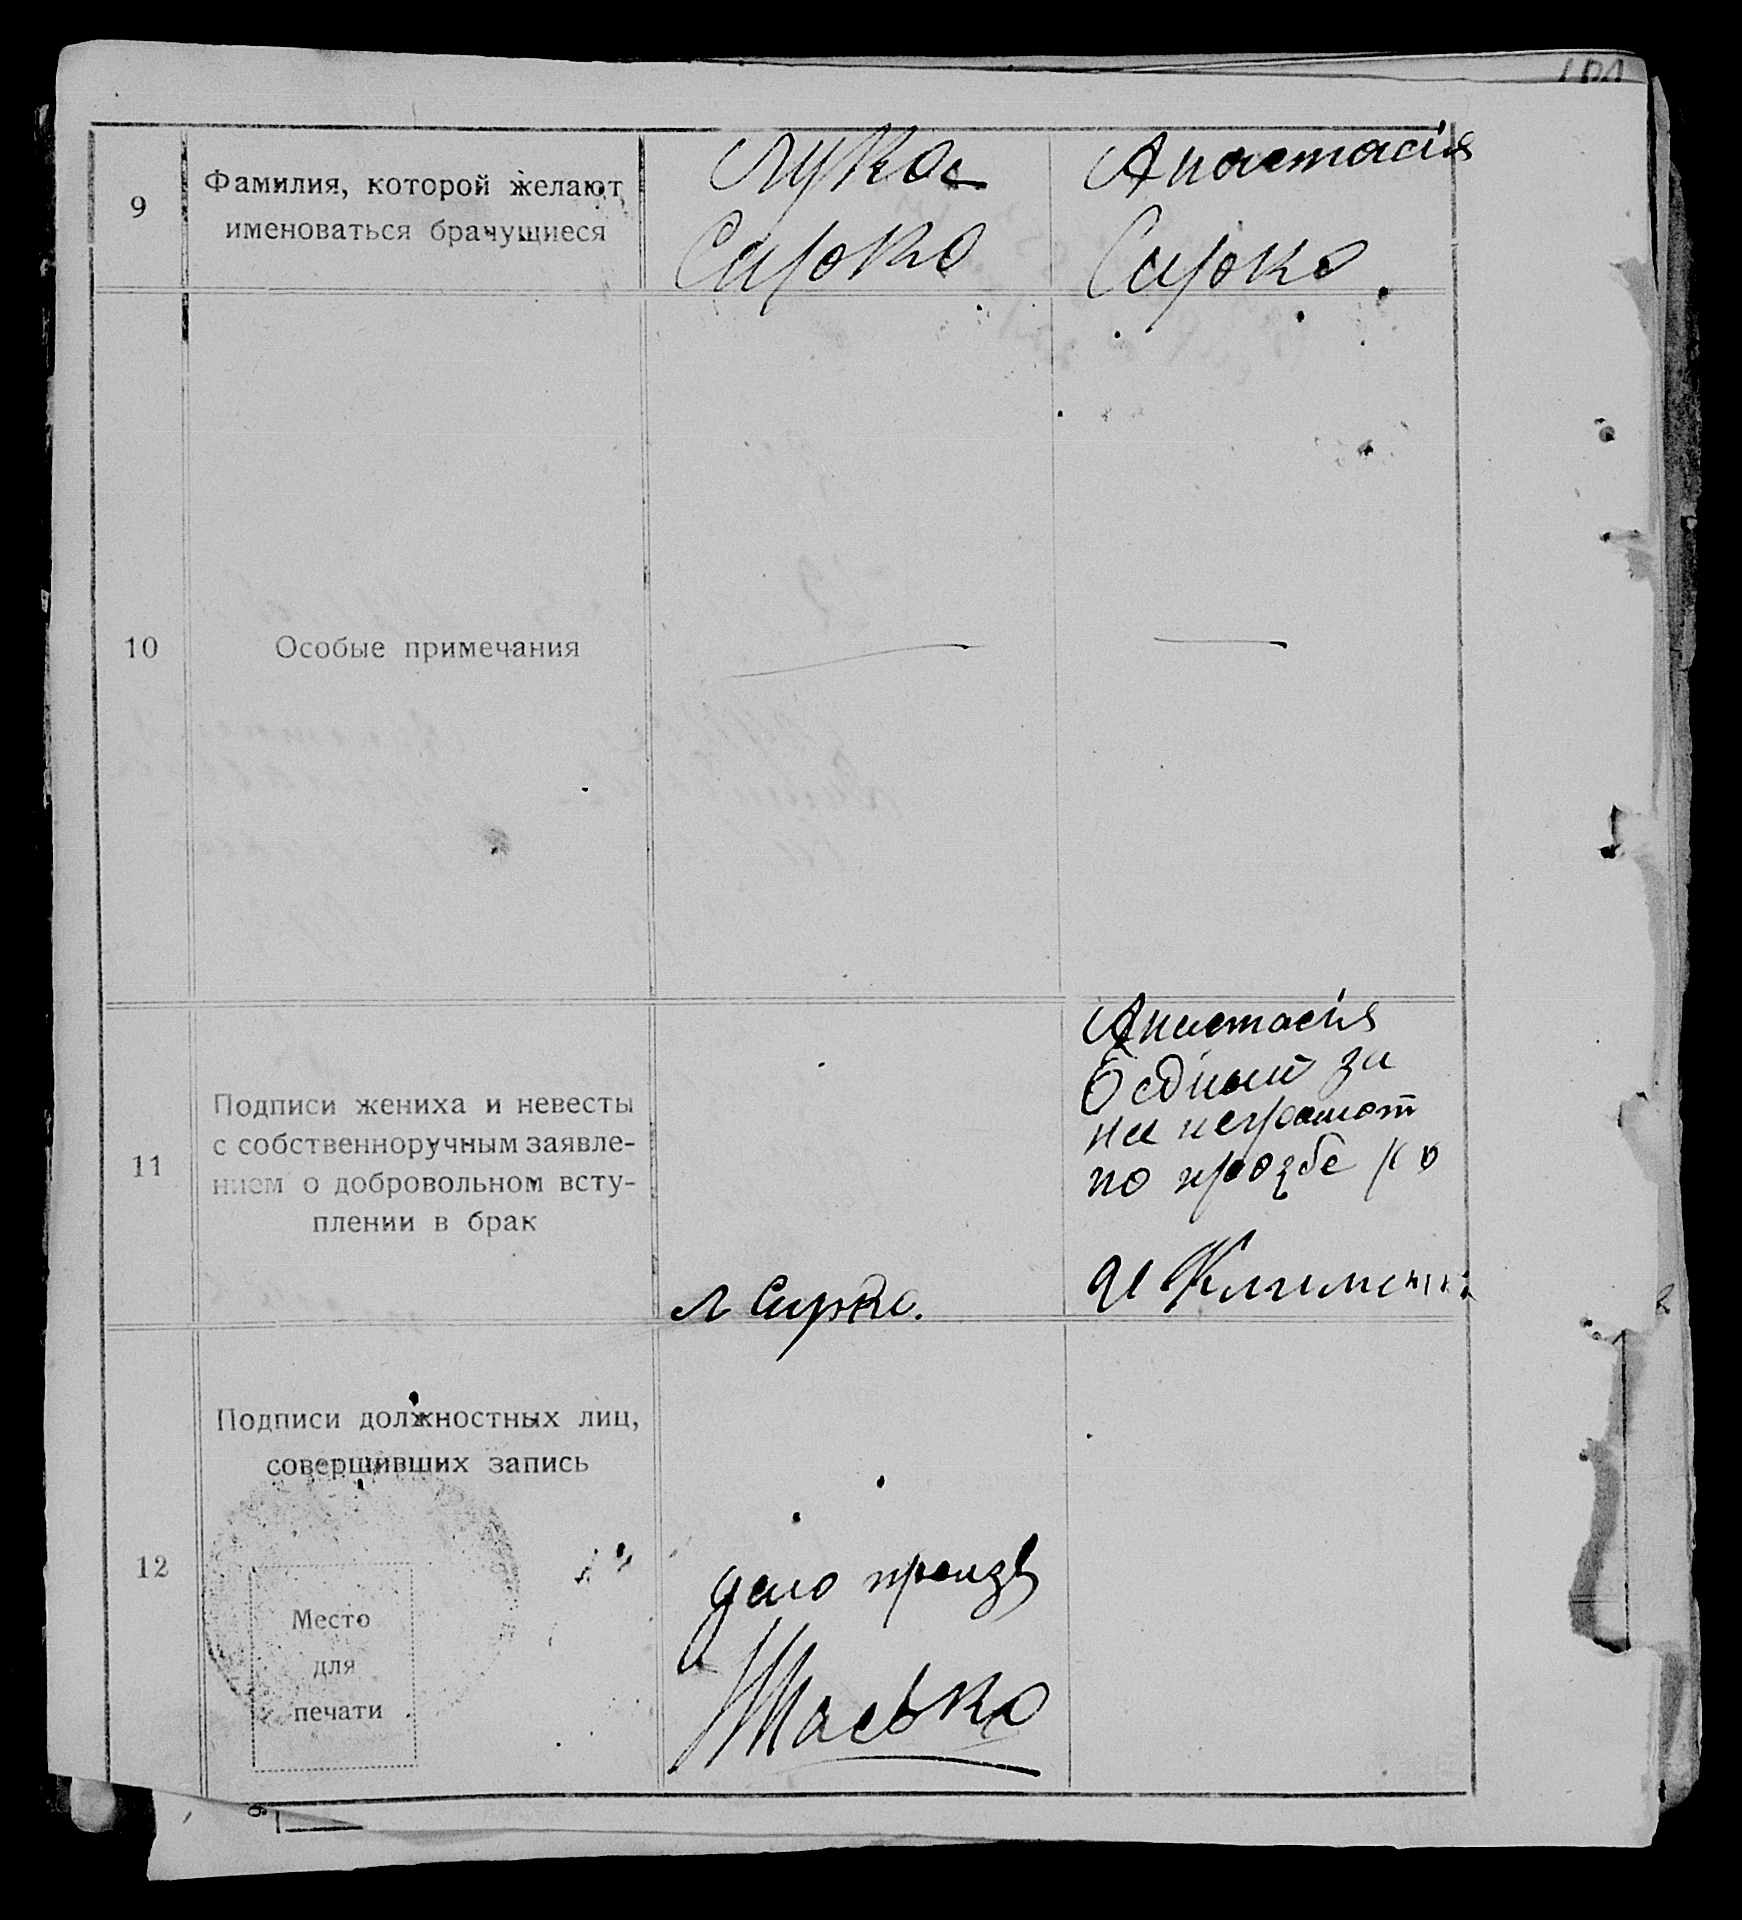 101
9
Фамилия, которой желают
именоваться брачущиеся
Лука
Сирко
Анастасія
Сирко
10
Особые примечания
11
Подписи жениха и невесты
с собственноручным заявле-
нием о добровольном всту-
плении в брак
Л Сирко.
Анастасія
Бедный за
не неграмот
по прозбе
И Клименко
12
Подписи должностных лиц,
совершивших запись
Место
для
печати
дело произв
Масько